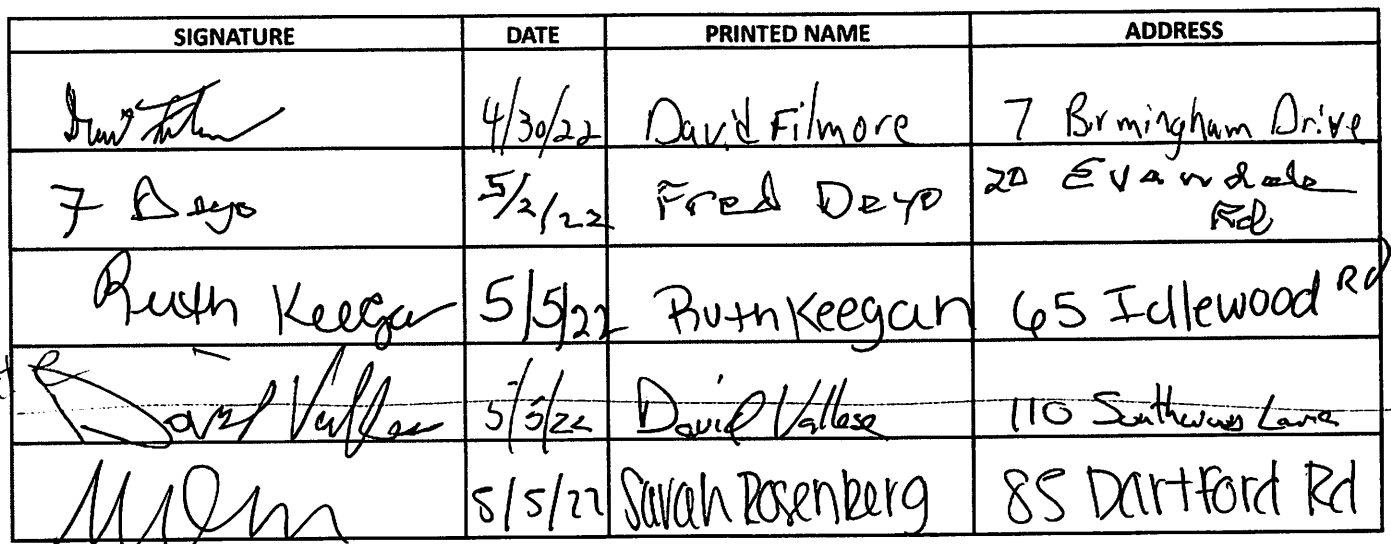 SIGNATURE DATE PRINTED NAME ADDRESS
4/30/22 David Filmore 7 Birmingham Drive
F Deyo 5/2/22 Fred Deyo 20 Evandale
Rd
Ruth Keegan 5/5/22 Ruth Keegan 65 Idlewood Rd
David Vallese 5/5/22 David Vallese 110 Lane
5/5/22 Sarah Rosenberg 85 Dartford Rd